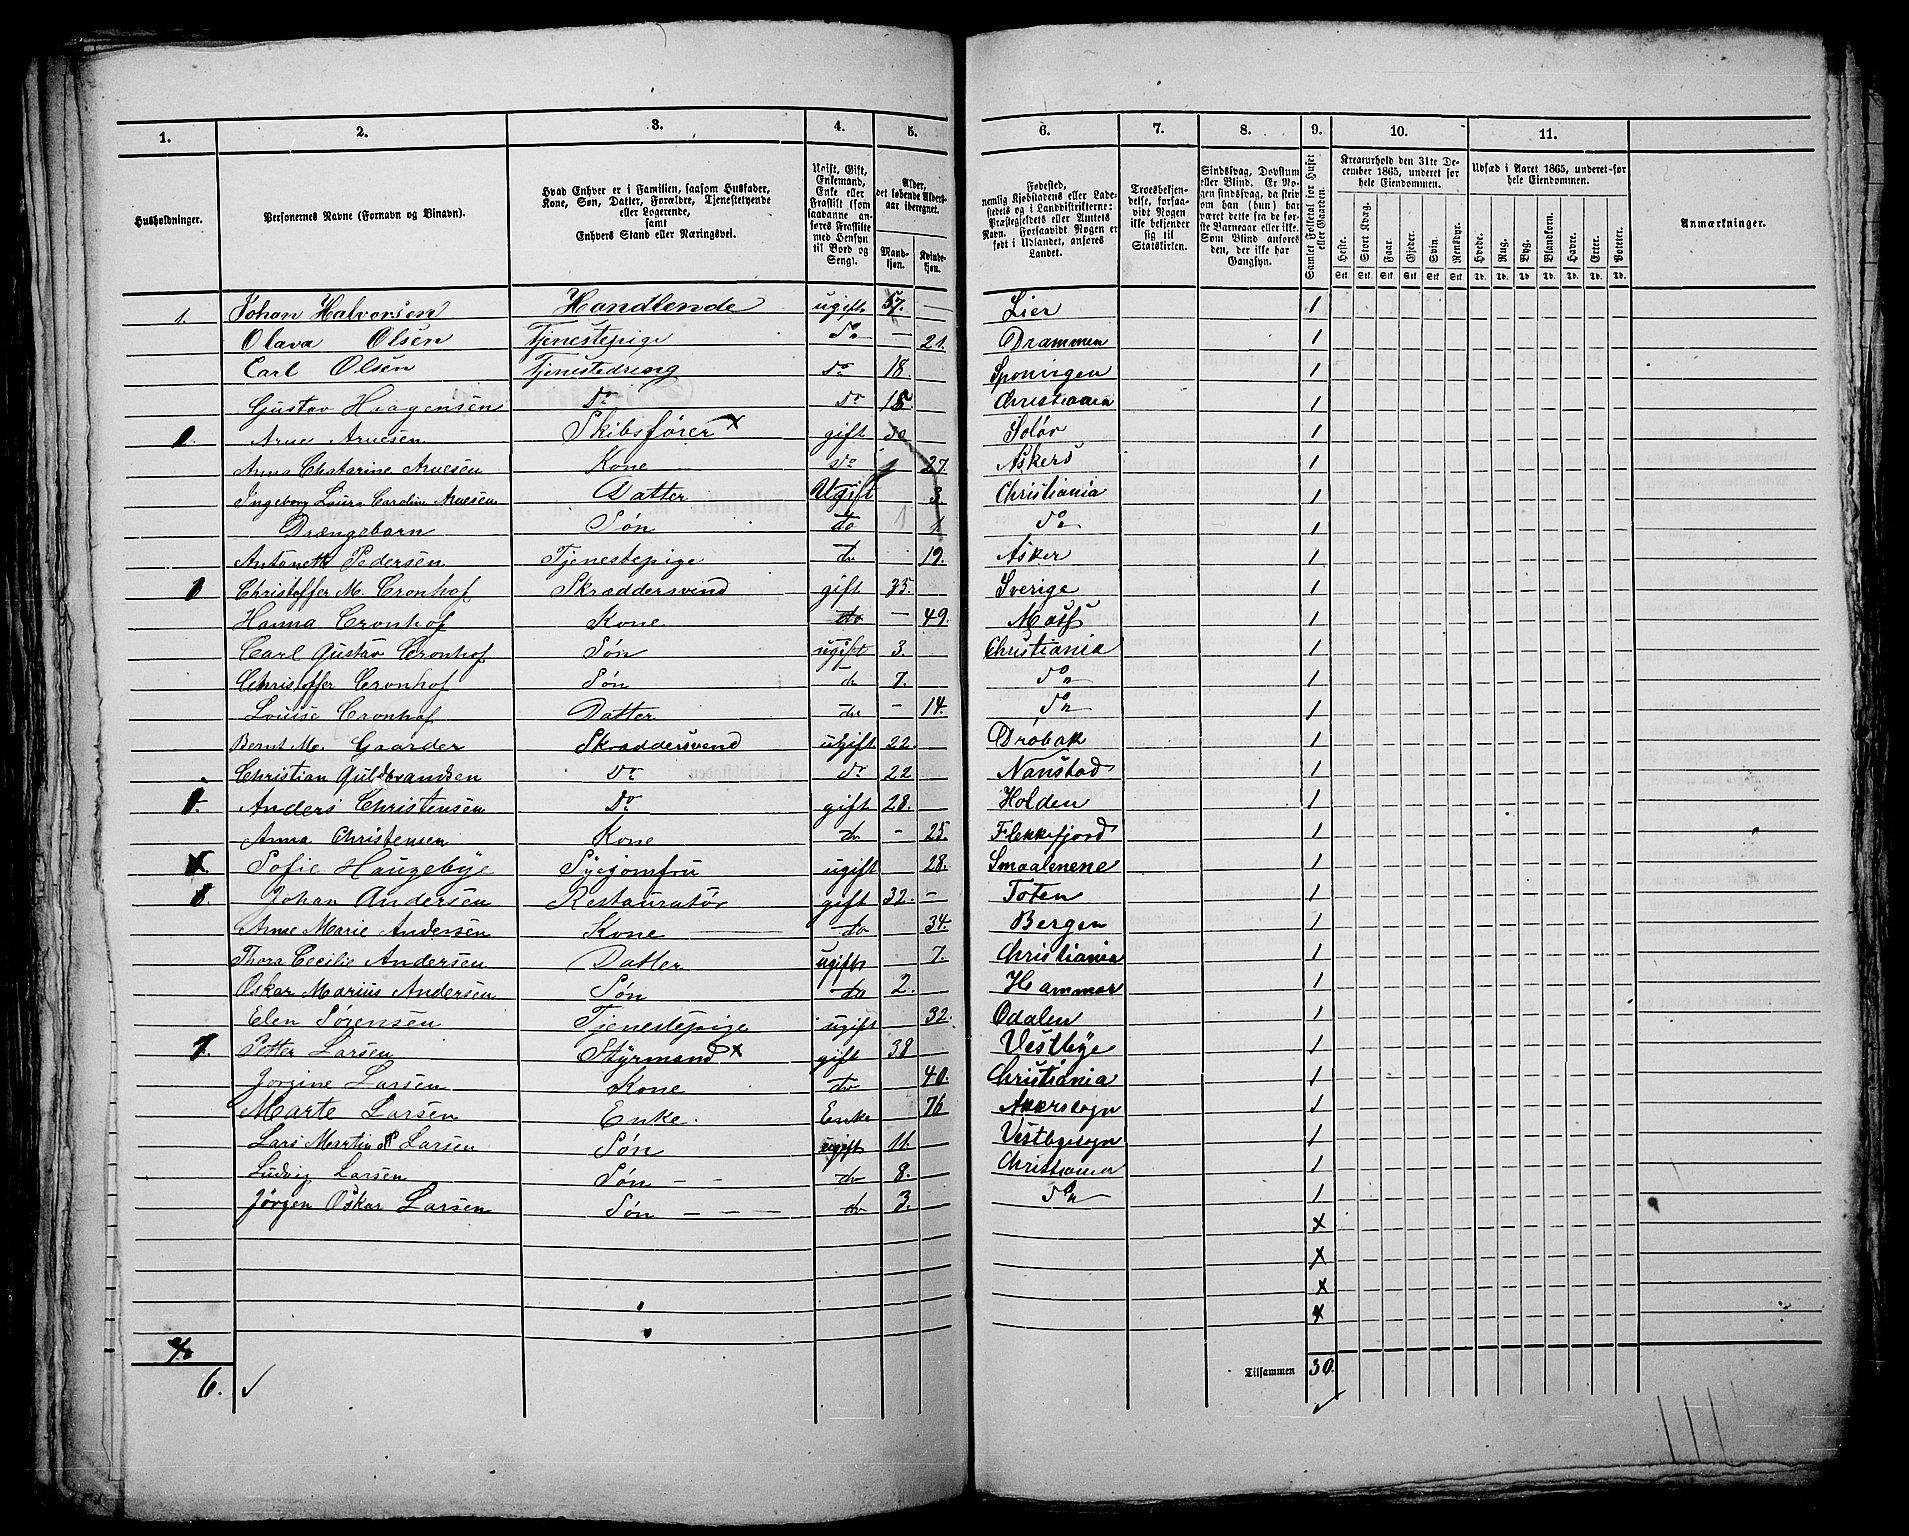 1. 2. 3. 4. 5. 6. 7. 8. 9. 10. 11.
Husholdninger.
Personernes Navne (Fornavn og Binavn).
Hvad Enhver er i Familien, saasom Husfader, Kone, Søn, Datter, Forældre, Tjenestetyende eller Logerende, samt Enhvers Stand eller Næringsvei.
Ugift, Gift, Enkemand, Enke eller Fraskilt (som saadanne anføres Fraskilte med Hensyn til Bord og Seng).
Alder, det løbende Aldersaar iberegnet.
Mandkjøn. Kvindekjøn.
Fødested, nemlig Kjøbstadens eller Ladestedets og i Landdistrikterne: Præstegjeldets eller Amtets Navn. Forsaavidt Nogen er født i Udlandet, anføres Landet.
Troesbekjendelse, forsaavidt Nogen ikke bekjender sig til Statskirken.
Sindssvag, Døvstum eller Blind. Er Nogen sindssvag, da skriv om han (hun) har været dette fra de første Barneaar eller ikke. Som Blind anføres den, der ikke har Gangsyn.
Samlet Folketal for Huset eller Gaarden.
Kreaturhold den 31te December 1865, underet for hele Eiendommen.
Heste. Stort Kvæg. Faar. Gjeder. Svin. Rensdyr.
Stk. Stk. Stk. Stk. Stk. Stk.
Udsæd i Aaret 1865, underet for hele Eiendommen.
Hvede. Rug. Byg. Blandkorn. Havre. Erter. Poteter.
Td. Td. Td. Td. Td. Td. Td.
Anmærkninger.
1. Johan Halvorsen Handlende ugift 57. — Lier 1
Olava Olsen Tjenestepige do — 21. Drammen 1
Carl Olsen Tjenestedreng do 18 1
Gustav Haagensen Do do 15 Christiania 1
Arne Arnesen Skibsfører x gift 30 Solør 1
Anna Arnesen Kone do 27. Askers 1
Ingeborg Laura Caroline Arnesen Datter Ugift 3. Christiania 1
Drængebarn Søn do 1 1. do 1
Pedersen Tjenestepige do 19. Asker 1
Christoffer M. Cronhof Skræddersvend gift 35. Sverige 1
Hanna Cronhof Kone do — 49. Moss 1
Carl Gustav Cronhof Søn ugift 3. Christiania 1
Christoffer Cronhof Søn do 7. do 1
Louise Cronhof Datter do — 14. do 1
Bernt M. Gaarder Skræddersvend ugift 22. Drøbak 1
Christian Guldbrandsen Do do 22 Nanstad 1
1. Anders Christensen Do gift 28. Holden 1
Anna Christensen Kone do — 25. Flekkefjord 1
Sofie Haugebye Syejomfru ugift 28. Smaalenene 1
Johan Andersen Restauratør gift 32. — Toten 1
Anne Marie Andersen Kone do 34. Bergen 1
Thora Cecilie Andersen Datter ugift 7. Christiania 1
Oskar Marius Andersen Søn do 2. Hammar 1
Elen Sørensen Tjenestepige ugift 32. Odalen 1
Petter Larsen Styrmand x gift 38 Vestbye 1
Jørgine Larsen Kone do 40. Christiania 1
Marte Larsen Enke. Enke 76 Akersogn 1
Lars Martin P Larsen Søn ugift 11. Vestbyesogn 1
Ludvig Larsen Søn — — do 8. Christiania 1
Jørgen Oskar Larsen Søn — — — do 3. do 1
x
x
x
x
Tilsammen 30.
6. ✓
✓